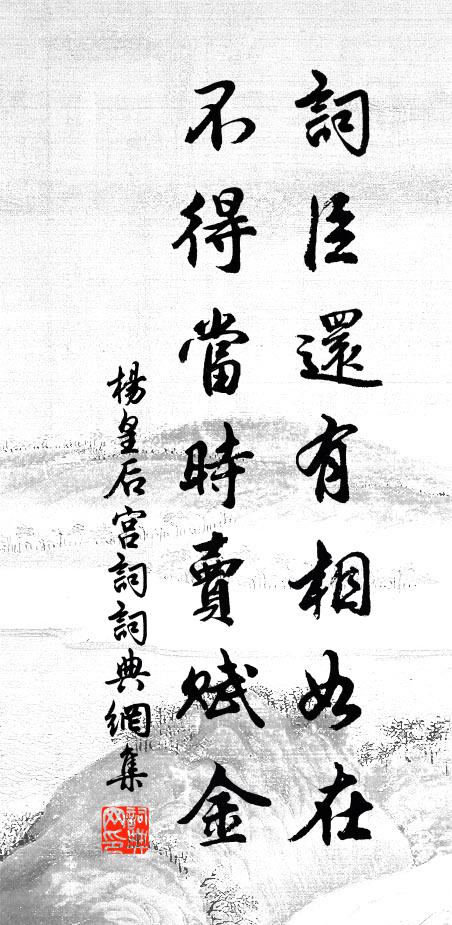 詞臣還有相如在
不得當時賣賦金
楊皇后宮詞詞典網集